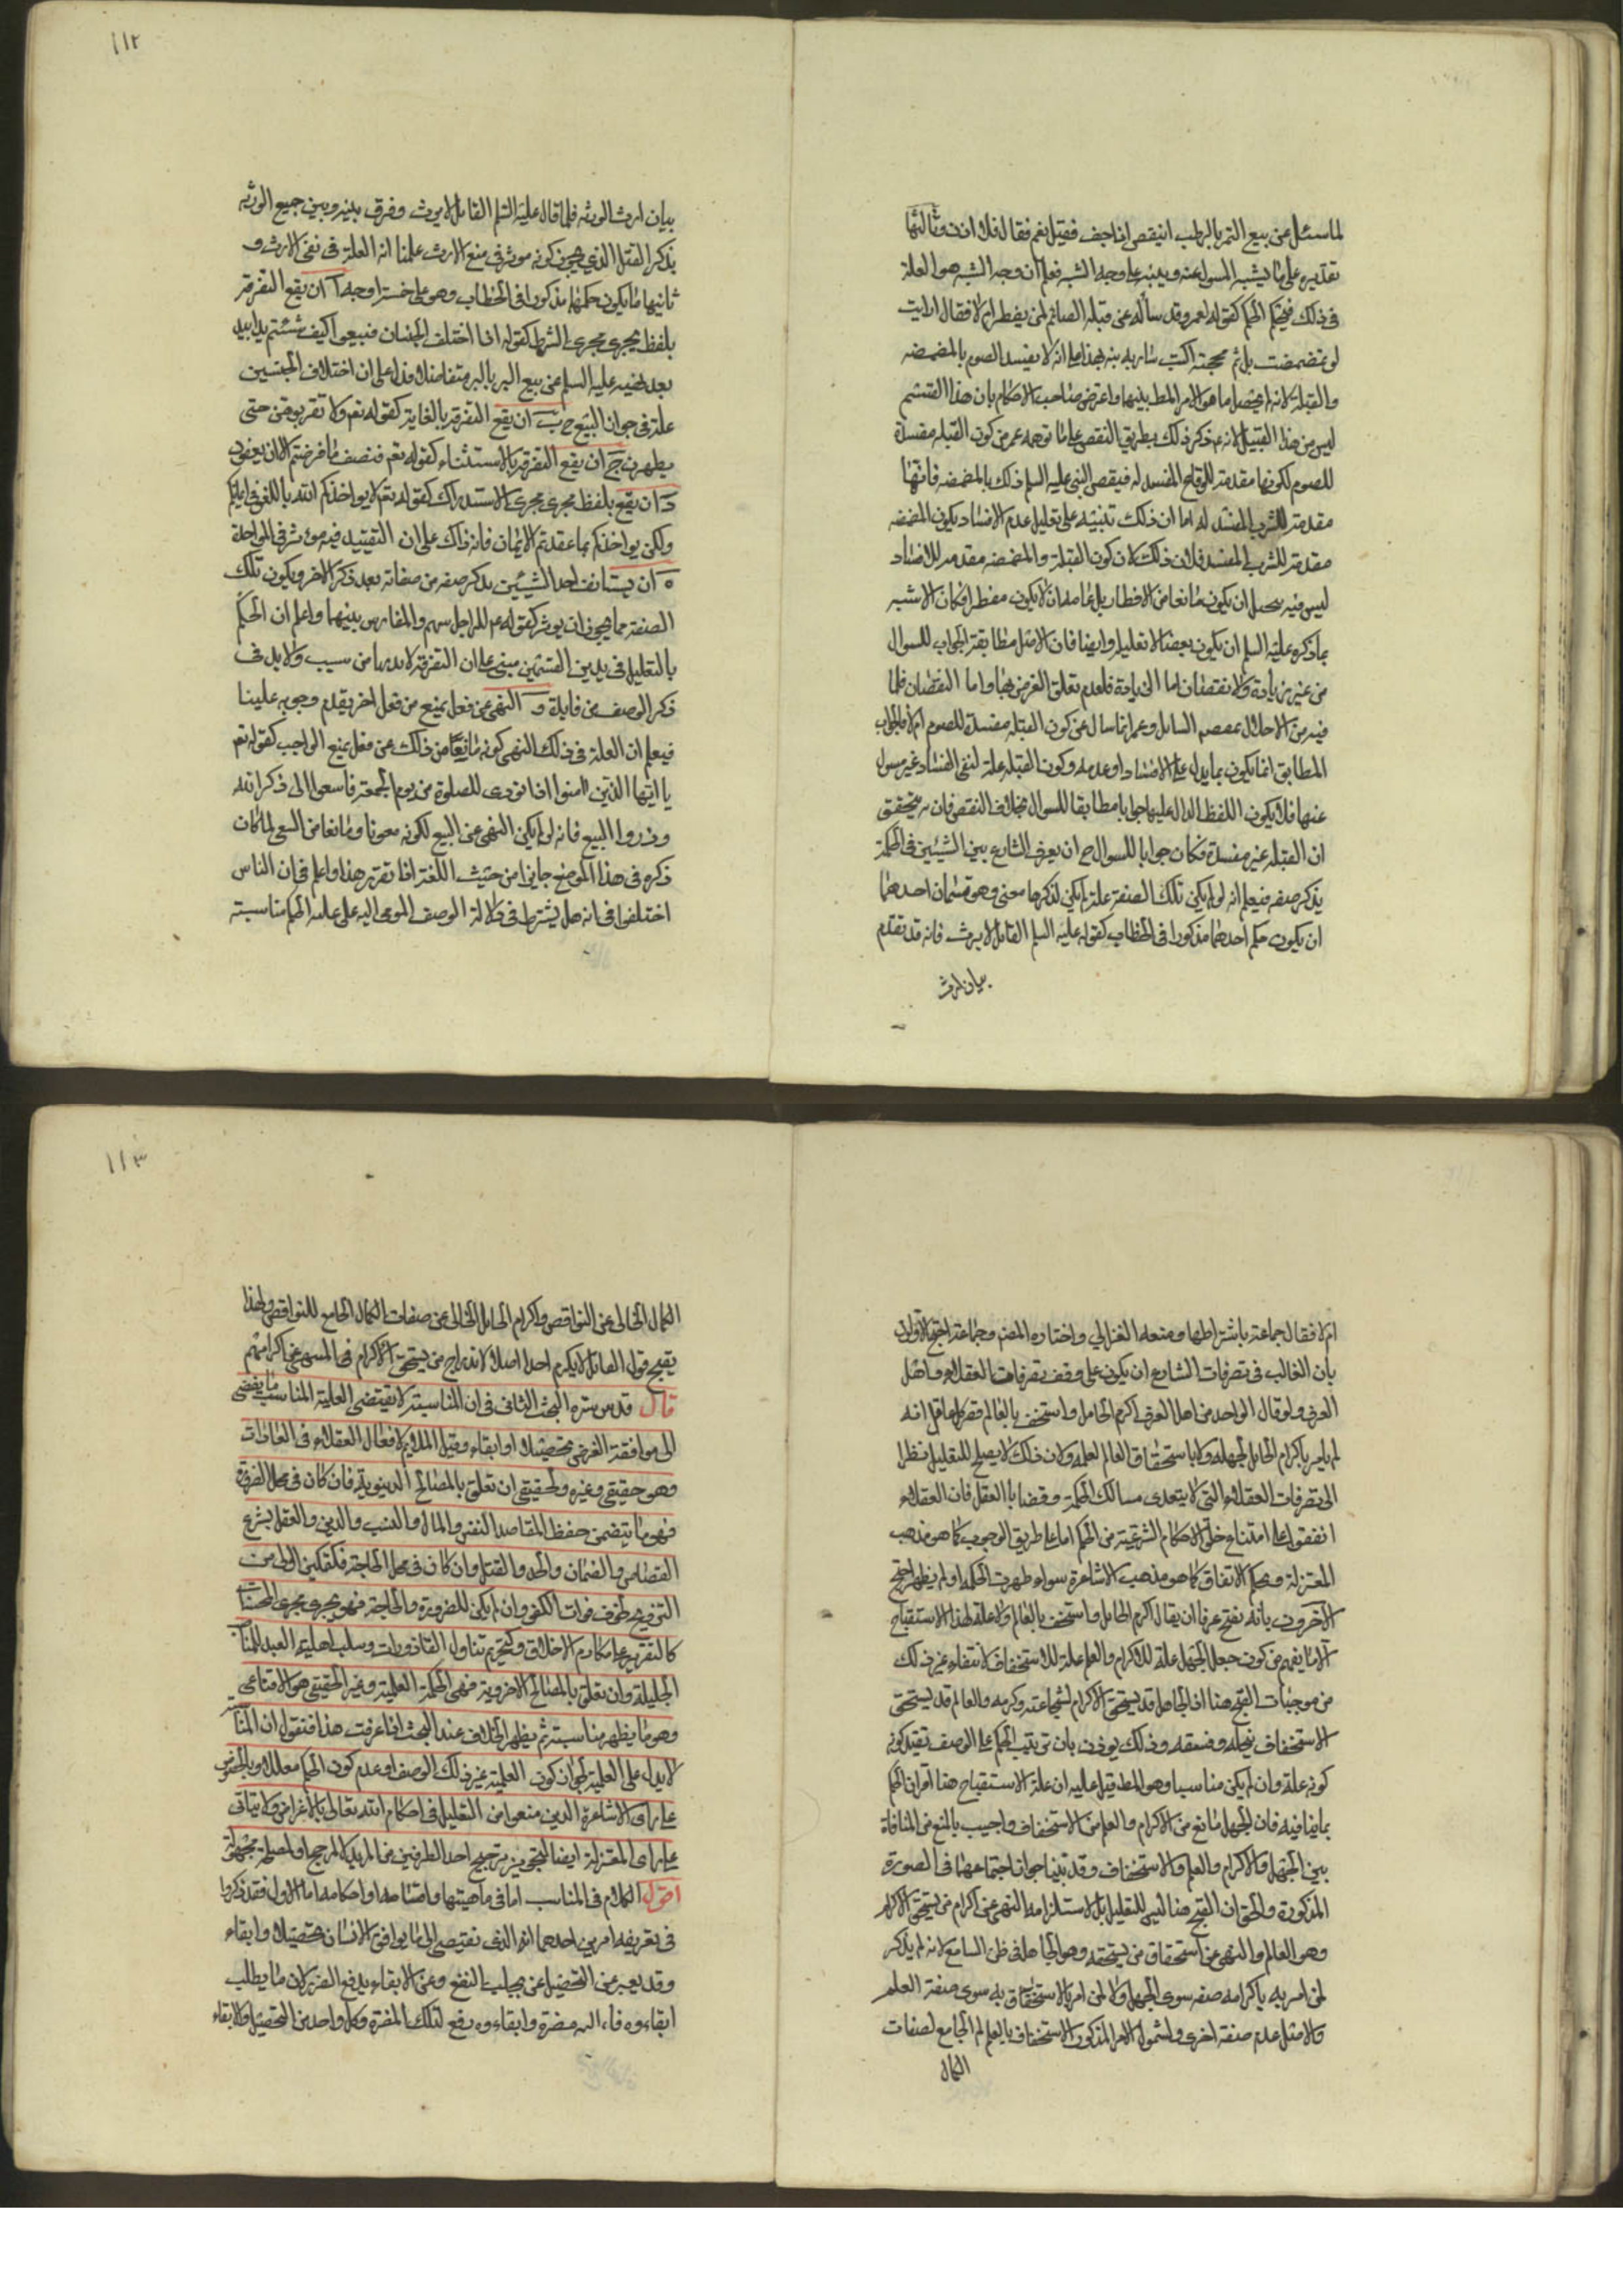 لما سئل عن بيع التمر بالرطب اينقص اذا جف فقيل نعم فقال فلا اذن وثالثها
تقديره على ما يشبه المسول عنه وينبه على وجه الشبه فعلم ان وجه الشبه هو العلة
في ذلك الحكم كقوله لعمر وقد سأله عن قبلة الصائم لمن يفطر ام لا فقال ارايت
لو تمضمضت بماء ثم مججته اكنت شاربه نبه بهذا على انه لا يفسد الصوم بالمضمضة
والقبلة لانه لم يحصل ما هو الامر المط بينهما واعترض صاحب الاحكام بان هذا القسم
ليس من هذا القبيل لانه عم ذكر ذلك بطريق النقض على ما توهمه عمر من كون القبلة مفسدة
للصوم لكونها مقدمة للوقاع المفسد له فينقض النبي عليه السلم ذلك بالمضمضة فانها
مقدمة للشرب المفسد له اما ان ذلك تنبيه على تعليل عدم الافساد بكون المضمضة
مقدمة للشرب المفسد فلا اذ ذلك كان كون القبلة والمضمضة مقدمة للافساد
ليس فيه ان يكون مانعا من الافطار بل غايته ان لا يكون مفطرا فكان الاشبه
بما ذكره عليه السلم ان يكون نقضا لا تعليلا وايضا فان الاصل مطابقة الجواب للسوال
من غير زيادة ولا نقصان اما الزيادة فلعدم تعلق الغرض بها واما النقصان فلما
فيه من الاخلال بمقصود السايل وعمر انما سال عن كون القبلة مفسدة للصوم ام لا فالجواب
المطابق انما يكون بما يدل على الافساد او عدمه وكون القبلة علة لنفي الفساد غير مسول
عنها فلا يكون اللفظ الدال عليها جوابا مطابقا للسوال بخلاف النقض فان به يتحقق
ان القبلة غير مفسدة فكان جوابا للسوال ح ان يفرق الشارع بين الشيئين في الحكم
بذكر صفة فيعلم انه لو لم يكن تلك الصفة علة لم يكن لذكرها معنى وهو قسمان احدهما
ان يكون حكم احدهما مذكورا في الخطاب كقوله عليه السلم القاتل لا يرث فانه قد تقدم
بيان ارث
١١٢
بيان ارث الورثة فلما قال عليه السلم القاتل لا يرث وفرق بينه وبين جميع الورثة
بذكر القتل الذي يجوز كونه موثرا في منع الارث علمنا انه العلة في نفي الارث و
ثانيها ما يكون حكمهما مذكورا في الخطاب وهو على خمسة اوجه آ ان يقع التفرقة
بلفظ يجرى مجرى الشرط كقوله اذا اختلف الجنسان فبيعوا كيف شئتم يدا بيد
بعد نهيه عليه السلم عن بيع البر بالبر متفاضلا فدل على ان اختلاف الجنسين
علة في جواز البيع ح ب ان يقع التفرقة بالغاية كقوله تع ولا تقربوهن حتى
يطهرن ج ان يقع التفرقة بالاستثناء كقوله تع فنصف ما فرضتم الا ان يعفون
د ان يقع بلفظ يجرى مجرى الاستدراك كقوله تع لا يواخذكم الله باللغو في ايمانكم
ولكن يواخذكم بما عقدتم الايمان فانه ذلك على ان التقييد فيه موثر في المواخذة
ه ان يستانف احد الشيئين بذكر صفة من صفاته بعد ذكر الاخر ويكون تلك
الصفة مما يجوز ان يوثر كقوله عم للراجل سهم وللفارس بينهما واعلم ان الحكم
بالتعليل في هذين القسمين مبني على ان التفرقة لا بد لها من سبب ولا بد في
ذكر الوصف من فايدة و النهى عن فعل يمنع من فعل اخر تقدم وجوبه علينا
فيعلم ان العلة في ذلك النهى كونه مانعا من ذلك عن فعل يمنع الواجب كقوله تع
يا ايها الذين امنوا اذا نودى للصلوة من يوم الجمعة فاسعوا الى ذكر الله
وذروا البيع فانه لو لم يكن النهى عن البيع لكونه معوقا ومانعا من السعى لما كان
ذكره في هذا الموضع جايزا من حيث اللغة اذا تقرر هذا واعلم فان الناس
اختلفوا في انه هل يشترط في دلالة الوصف المومى اليه على علية الحكم مناسبته
ام لا فقال جماعة باشتراطها ومنعه الغزالي واختاره المصنف وجماعة احتج الاولون
بان الغالب في تصرفات الشارع ان يكون على وفق تصرفات العقلاء واهل
العرف ولو قال الواحد من اهل العرف اكرم الجاهل واستخف بالعالم انه
لم يامر باكرام الجاهل لجهله ولا باستحقاق العالم لعلمه وان ذلك لا يصلح للتعليل نظرا
الى تصرفات العقلاء التى لا يتعدى مسالك الحكمة وقضايا العقل فان العقلاء
اتفقوا على امتناع خلو الاحكام الشرعية من الحكم اما على طريق الوجوب كما هو مذهب
المعتزلة وبحكم الاتفاق كما هو مذهب الاشاعرة سواء ظهرت الحكمة او لم يظهر احتج
الآخرون بانه يقبح عرفا ان يقال اكرم الجاهل واستخف بالعالم ولا علة لهذا الاستقباح
الا ما يفهم من كون جعل الجهل علة للاكرام والعلم علة للاستخفاف لانتفاء غير ذلك
من موجبات القبح هنا اذ الجاهل قد يستحق الاكرام لشجاعته وكرمه والعالم قد يستحق
الاستخفاف لبخله وفسقه وذلك يوذن بان ترتيب الحكم على الوصف يفيد كونه
كونه علة وان لم يكن مناسبا وهو المط قيل عليه ان علة الاستقباح هنا اقتران الحكم
بما ينافيه فان الجهل مانع من الاكرام والعلم من الاستخفاف واجيب بالمنع من المنافاة
بين الجهل والاكرام والعلم والاستخفاف وقد بينا جواز اجتماعهما في الصورة
المذكورة والحق ان القبح هنا ليس للتعليل بل لاستلزامه النهى عن اكرام من يستحق الاكرام
وهو العالم والنهى عن استحقاق من يستحقه وهو الجاهل في ظن السامع لانه لم يذكر
لمن امر به باكرامه صفة سوى الجهل ولا لمن امر بالاستخفاف به سوى صفة العلم
والاصل عدم صفة اخرى ولشمول الامر المذكور الاستخفاف بالعالم الجامع لصفات
الكمال
١١٣
الكمال الخالى عن النواقص واكرام الجاهل الخالى عن صفات الكمال الجامع للنواقص ولهذا
يقبح قول القائل لا يكرم احدا اصلا لاندراج من يستحق الاكرام في المنهى عن اكرامهم
قال قدس سره البحث الثانى في ان المناسبة لا يقتضى العلية المناسب ما يفضى
الى موافقة الغرض تحصيلا او ابقاء وقيل الملايم لافعال العقلاء في العادات
وهو حقيقى وغيره والحقيقى ان تعلق بالمصالح الدنيوية فان كان في محل الضرورة
فهو ما يتضمن حفظ المقاصد النفس والمال والنسب والدين والعقل بشرع
القصاص والضمان والحد والقتل وان كان في محل الحاجة فكتمكين الولى من
التزويج لخوف فوات الكفو وان لم يكن للضرورة والحاجة فهو يجرى مجرى التحسينات
كالتقرير على مكارم الاخلاق وكتحريم تناول القاذورات وسلب اهلية العبد للمناصب
الجليلة وان تعلق بالمصالح الاخروية فهى الحكمة العلمية وغير الحقيقى هو الاقناعى
وهو ما يظهر مناسبته ثم يظهر الخلاف عند البحث اذا عرفت هذا فنقول ان المناسبة
لا يدل على العلية لجواز كون العلية غير ذلك الوصف او عدم كون الحكم معللا
على راى الاشاعرة الذين منعوا من التعليل في احكام الله تعالى بالاغراض ولا يتاتى
على راى المعتزلة ايضا لتجويز ترجيح احد الطرفين من المريد لا لمرجح او لمصلحة مجهولة
اقول الكلام في المناسب اما في ماهيتها واقسامه او احكامه اما الاول فقد ذكروا
في تعريفه امرين احدهما انه الذى يفضى الى ما يوافق الانسان تحصيلا وابقاء
وقد يعبر عن التحصيل عن بجلب النفع وعن الابقاء بدفع الضرر لان ما يطلب
ابقاءوه فازالته مضرة وابقاءوه دفع لتلك المضرة وكل واحد من التحصيل والابقاء